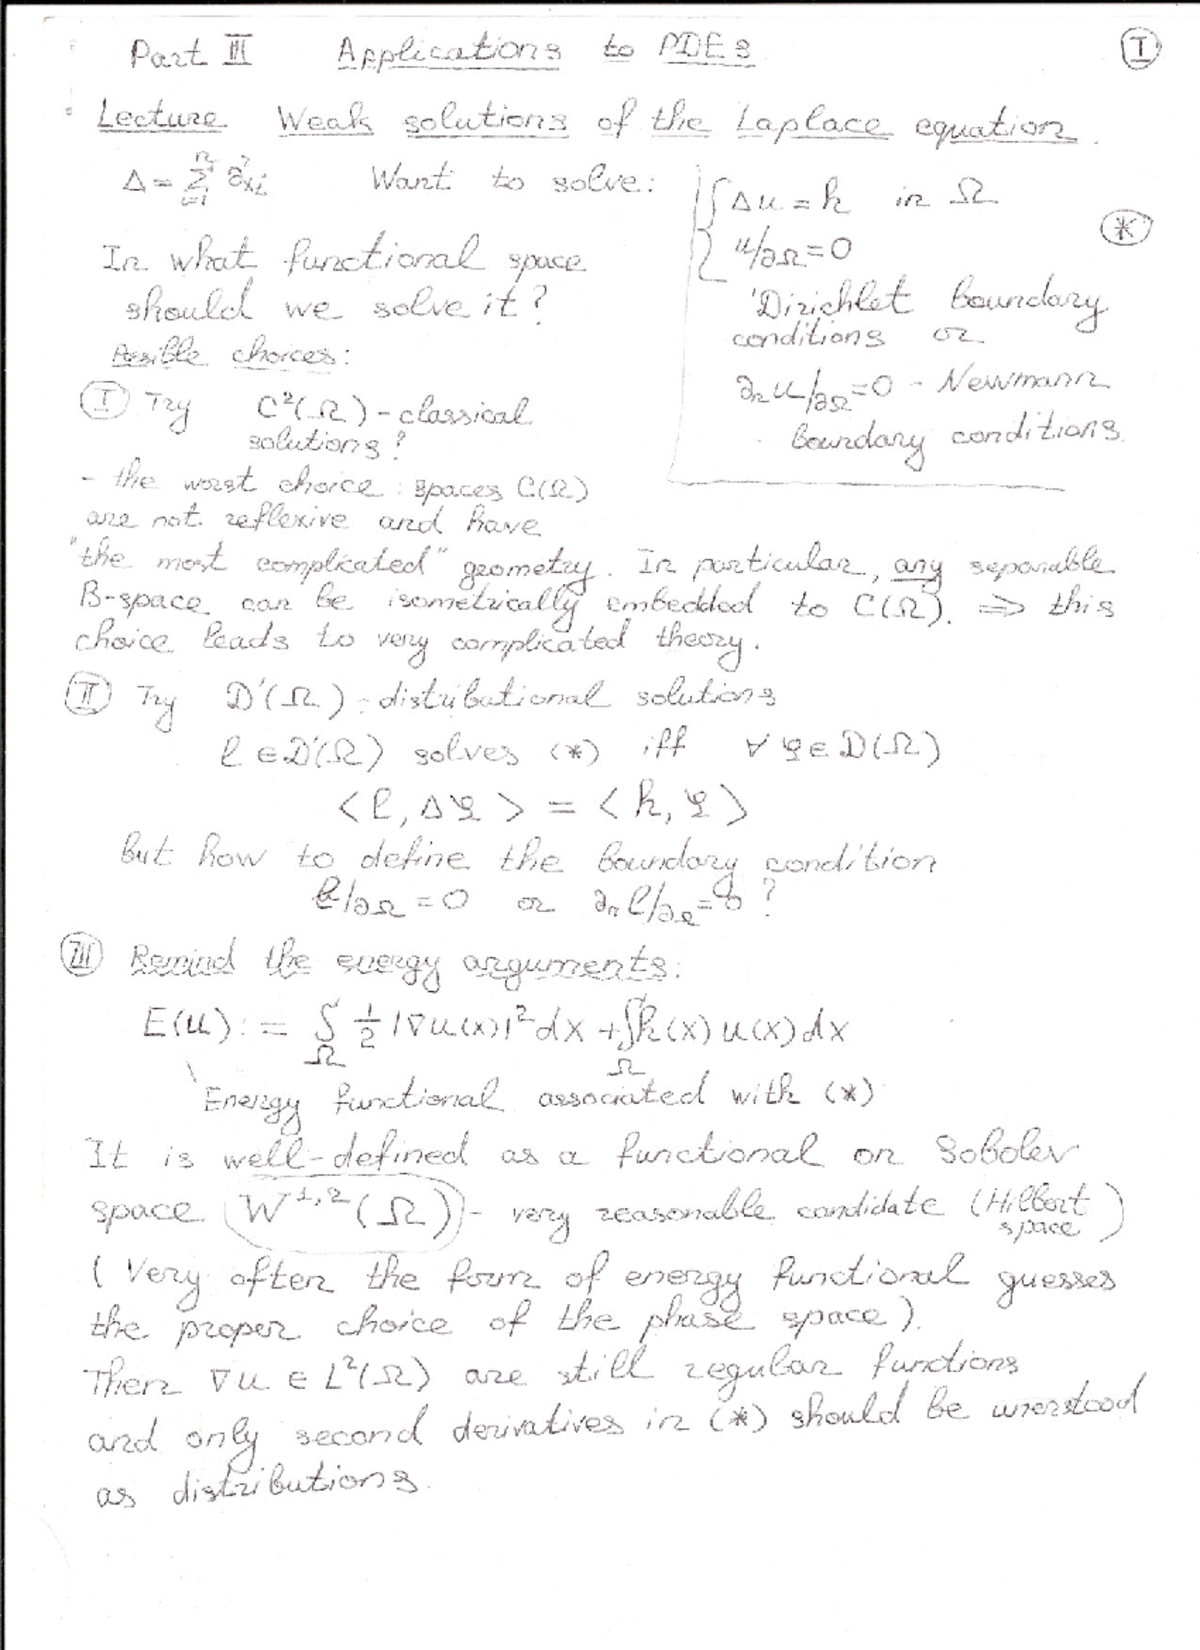 Part III Applications to PDEs
I
Lecture Weak solutions of the Laplace equation.
Δ = Σ_{i=1}^{n} ∂²_{x_i} Want to solve:
{ Δu = h in Ω
u/∂Ω = 0
(*)
'Dirichlet boundary
conditions or
∂_n u/∂Ω = 0 - Newmann
boundary conditions.
In what functional space
should we solve it?
Posible choices:
(I) Try C²(Ω) - classical
solutions?
- the worst choice: spaces C(Ω)
are not reflexive and have
"the most complicated" geometry. In particular, any separable
B-space can be isometrically embedded to C(Ω). ⇒ this
choice leads to very complicated theory.
(II) Try D'(Ω) - distributional solutions
l ∈ D'(Ω) solves (*) iff ∀ φ ∈ D(Ω)
<l, Δφ> = <h, φ>
but how to define the boundary condition
l/∂Ω = 0 or ∂_n l/∂Ω = 0 ?
(III) Remind the energy arguments:
E(u) := ∫_Ω ½ |∇u(x)|² dx + ∫_Ω h(x) u(x) dx
Energy functional associated with (*)
It is well-defined as a functional on Sobolev
space W^{1,2}(Ω) - very reasonable candidate (Hilbert space)
(Very often the form of energy functional guesses
the proper choice of the phase space).
Then ∇u ∈ L²(Ω) are still regular functions
and only second derivatives in (*) should be unerstood
as distributions.